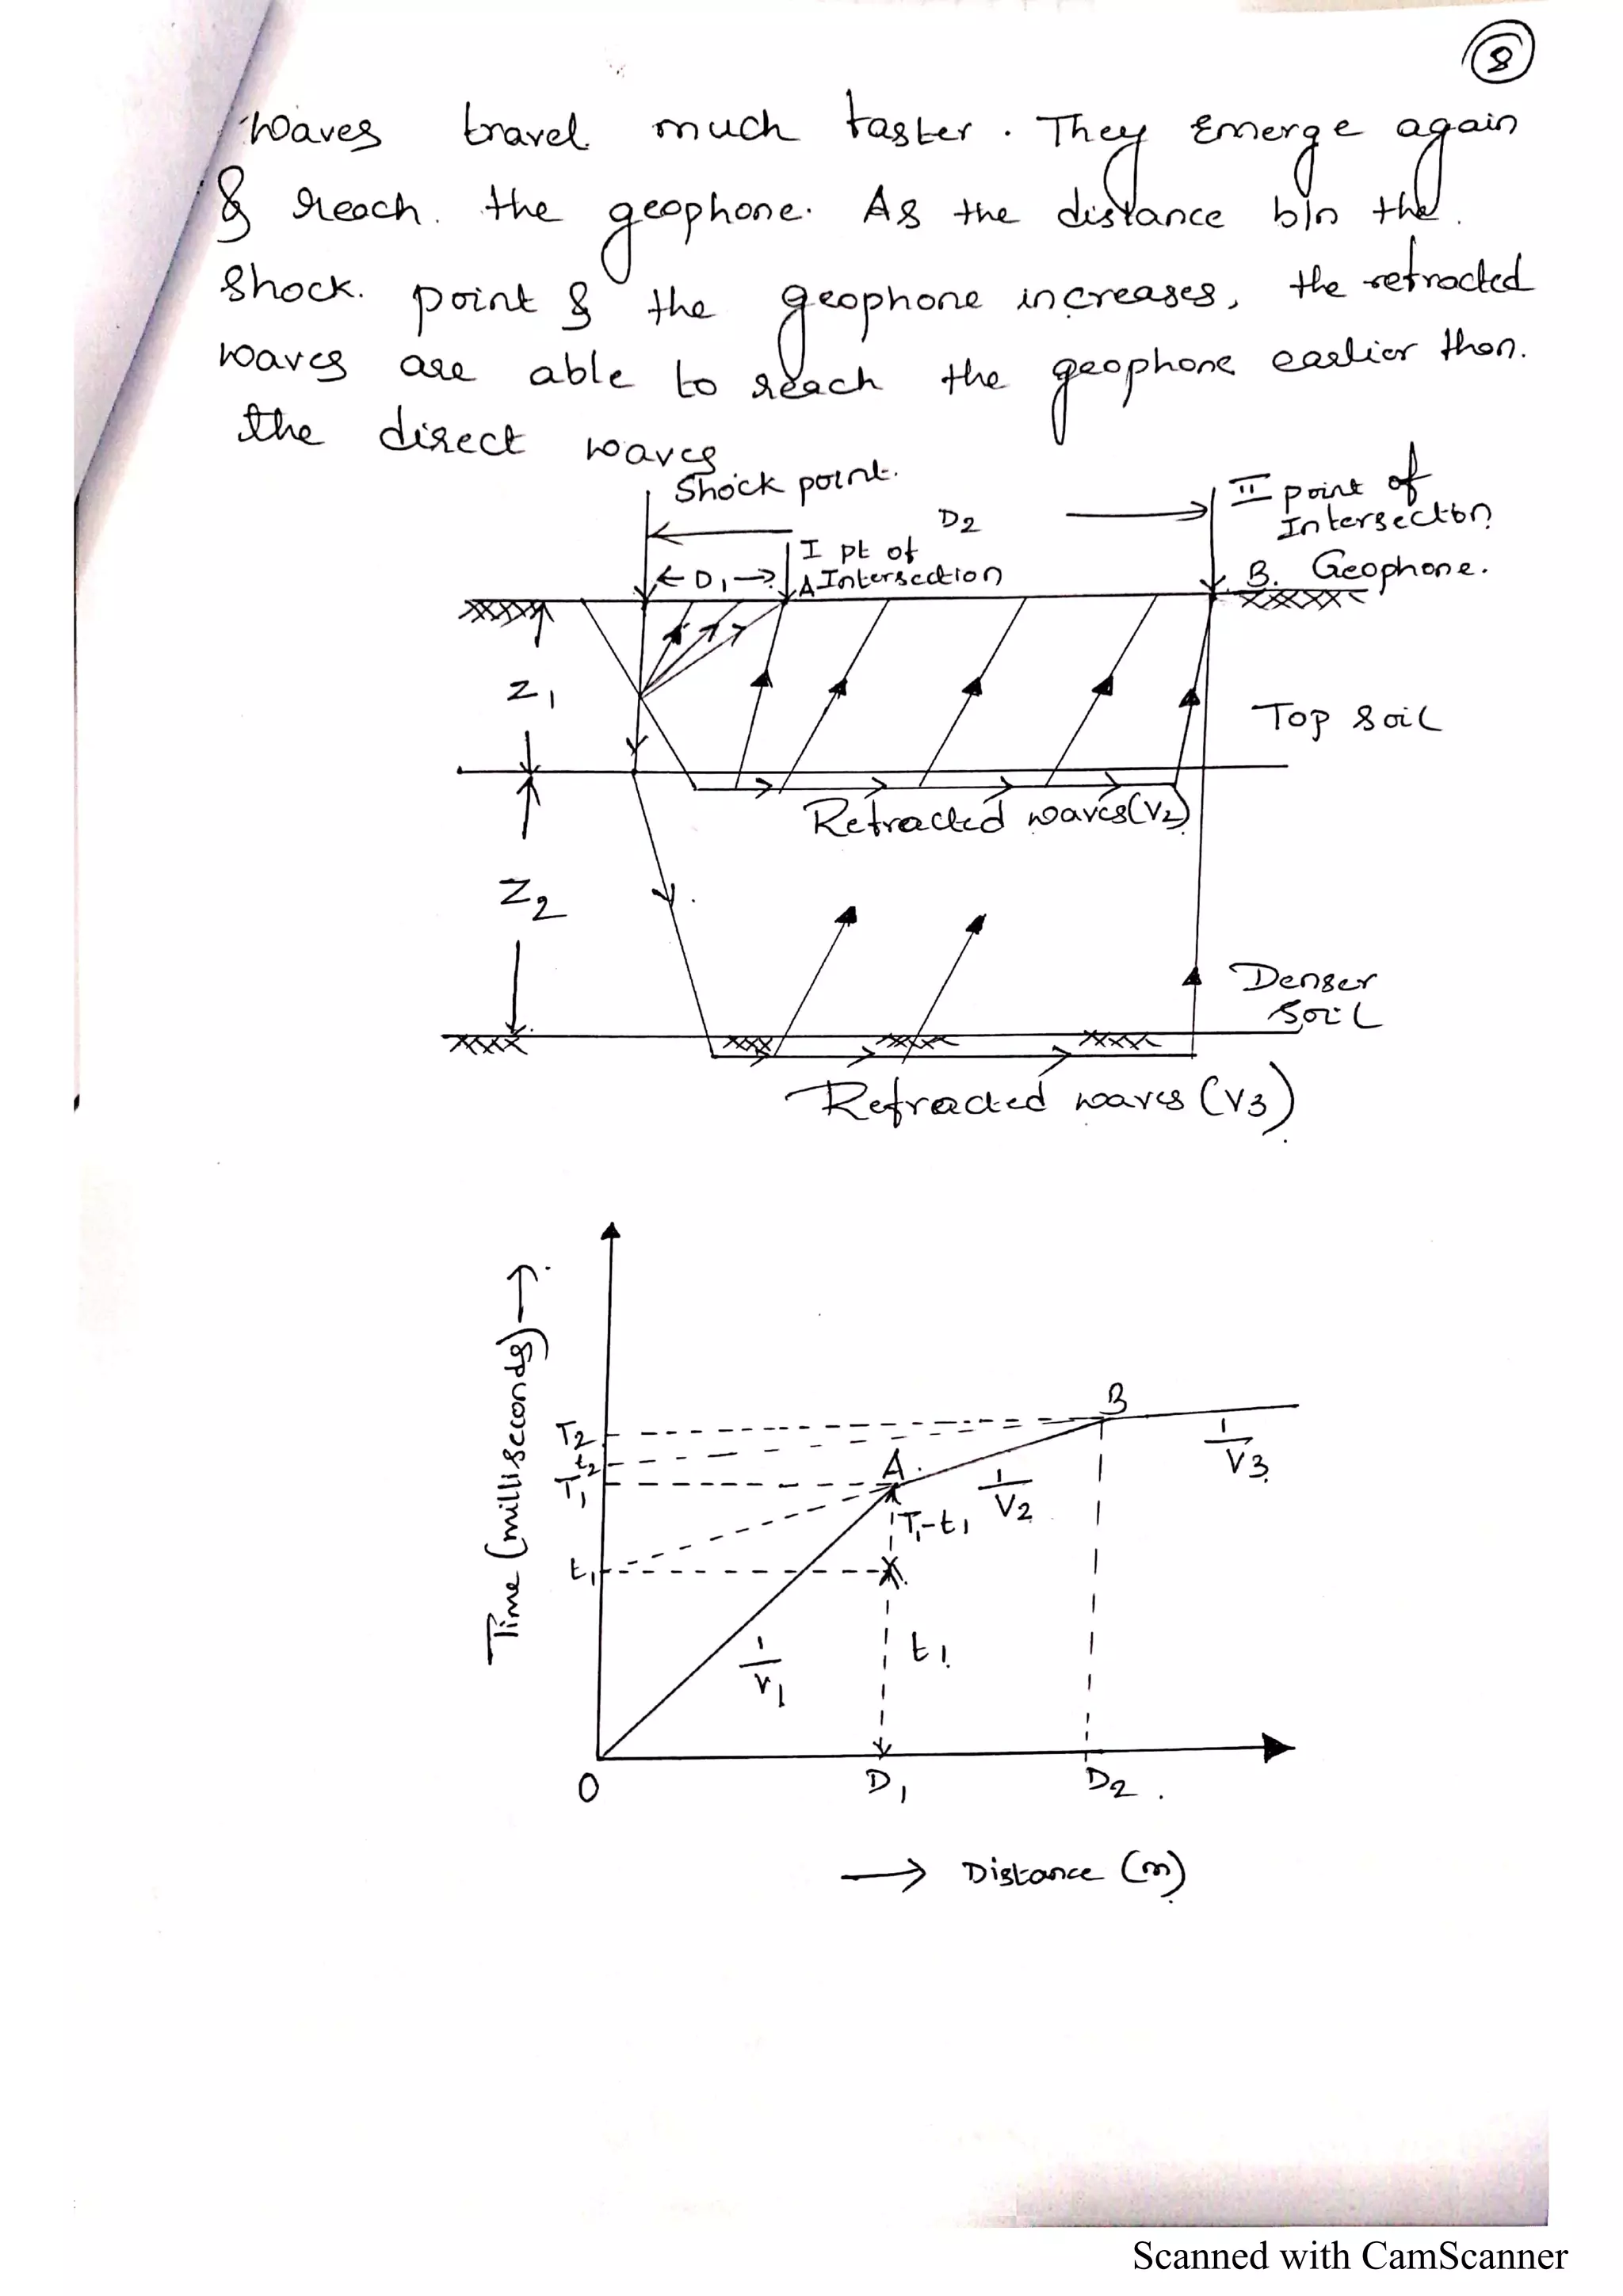 8
waves travel much faster. They Emerge again
& reach the geophone. As the distance b/n the
shock point & the geophone increases, the refracted
waves are able to reach the geophone earlier than
the direct waves.
Shock point.
II point of
Intersection
D2
I pt of
← D1 → A Intersection
B. Geophone.
Z1
Top soil
Refracted waves (V2)
Z2
Denser
Soil
Refracted waves (V3)
Time (milliseconds) →
B
T2
1/V3
t2
A
T1
1/V2
T1-t1
t1
t1
1/V1
O
D1
D2
→ Distance (m)
Scanned with CamScanner